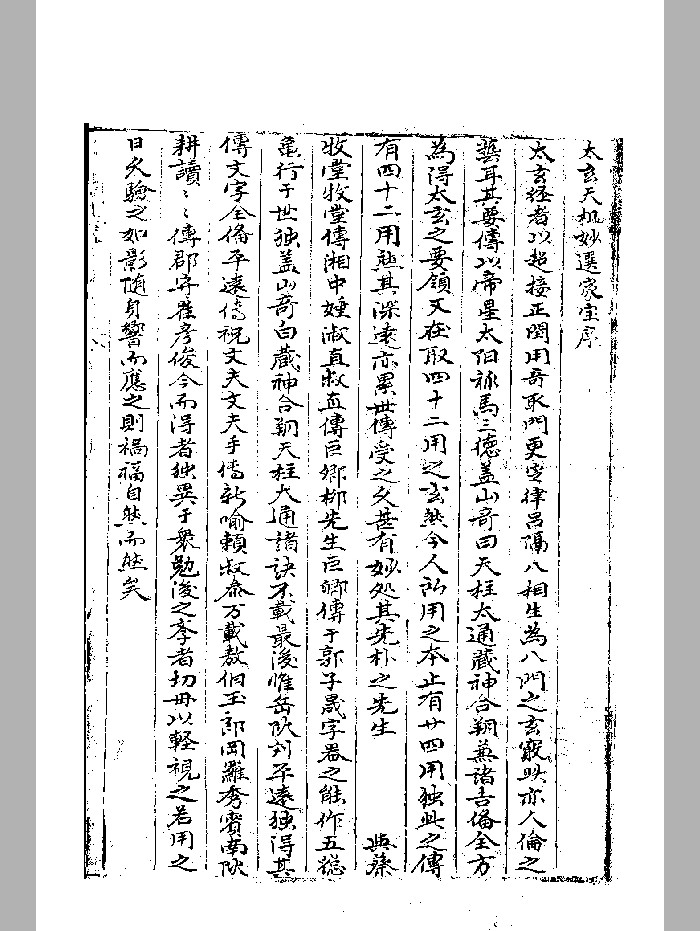 太玄天机妙選家宝序
太玄经者以超接正閏用奇取門更定律吕隔八相生為八門之玄竅此亦人倫之
龔耳其要傳以帝星太阳祿馬三德盖山奇曰天柱太通藏神合朔兼諸吉俻全方
為得太玄之要領又在取四十二用之玄然今人所用之本止有廿四用独此之傳
有四十二用然其深遠亦累世傳受之久甚有妙处其先朴之先生 典藻
牧堂牧堂傳湘中姚淑真叔真傳巨鄉柳先生巨鄉傳于郭子晟字器之能作五总
龜行于世独盖山奇白藏神合朔天柱大通諸訣不載最後惟岳欧刘平遠独得其
傳文字全俻平遠傳祝文夫文夫手傳新喻頼叔泰万載敖伯玉郎岡羅秀賓南欧
耕讀讀傳郡庠崔彦俊今而得者独異于衆勉後之孝者切毋以軽視之若用之
日久驗之如影随身響而應之則禍福自然而然矣